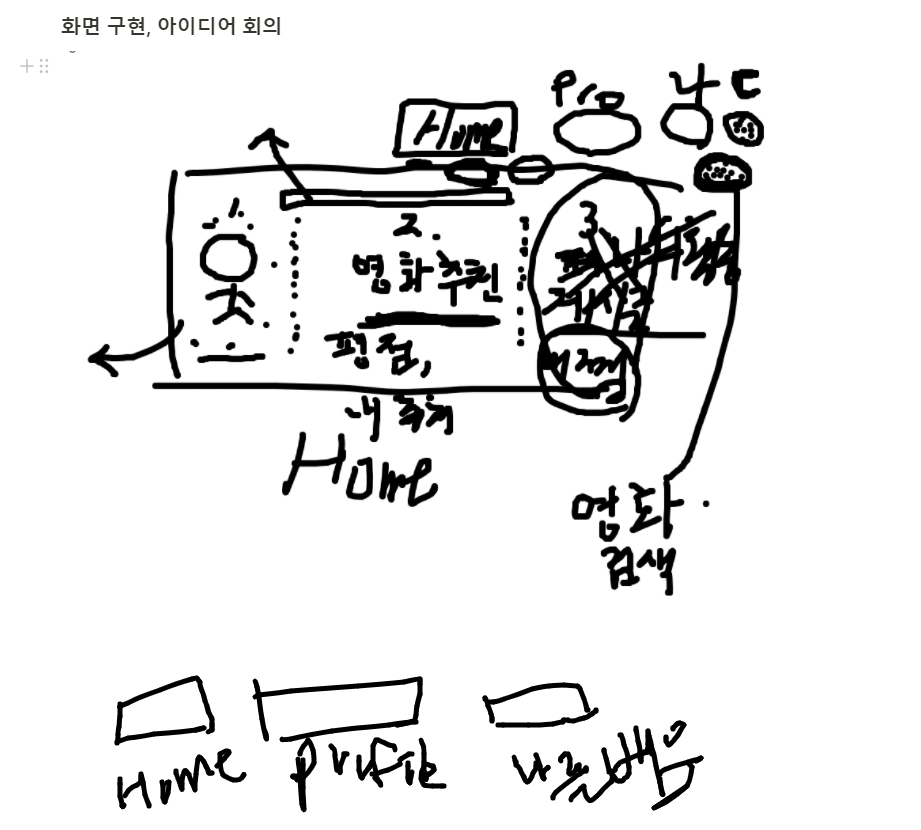 화면 구현, 아이디어 회의
Pro 나 ㄷ
Home
1.
2.
영화 추천
3
평점,
내 취치
Home
영화
검색
Home
profile